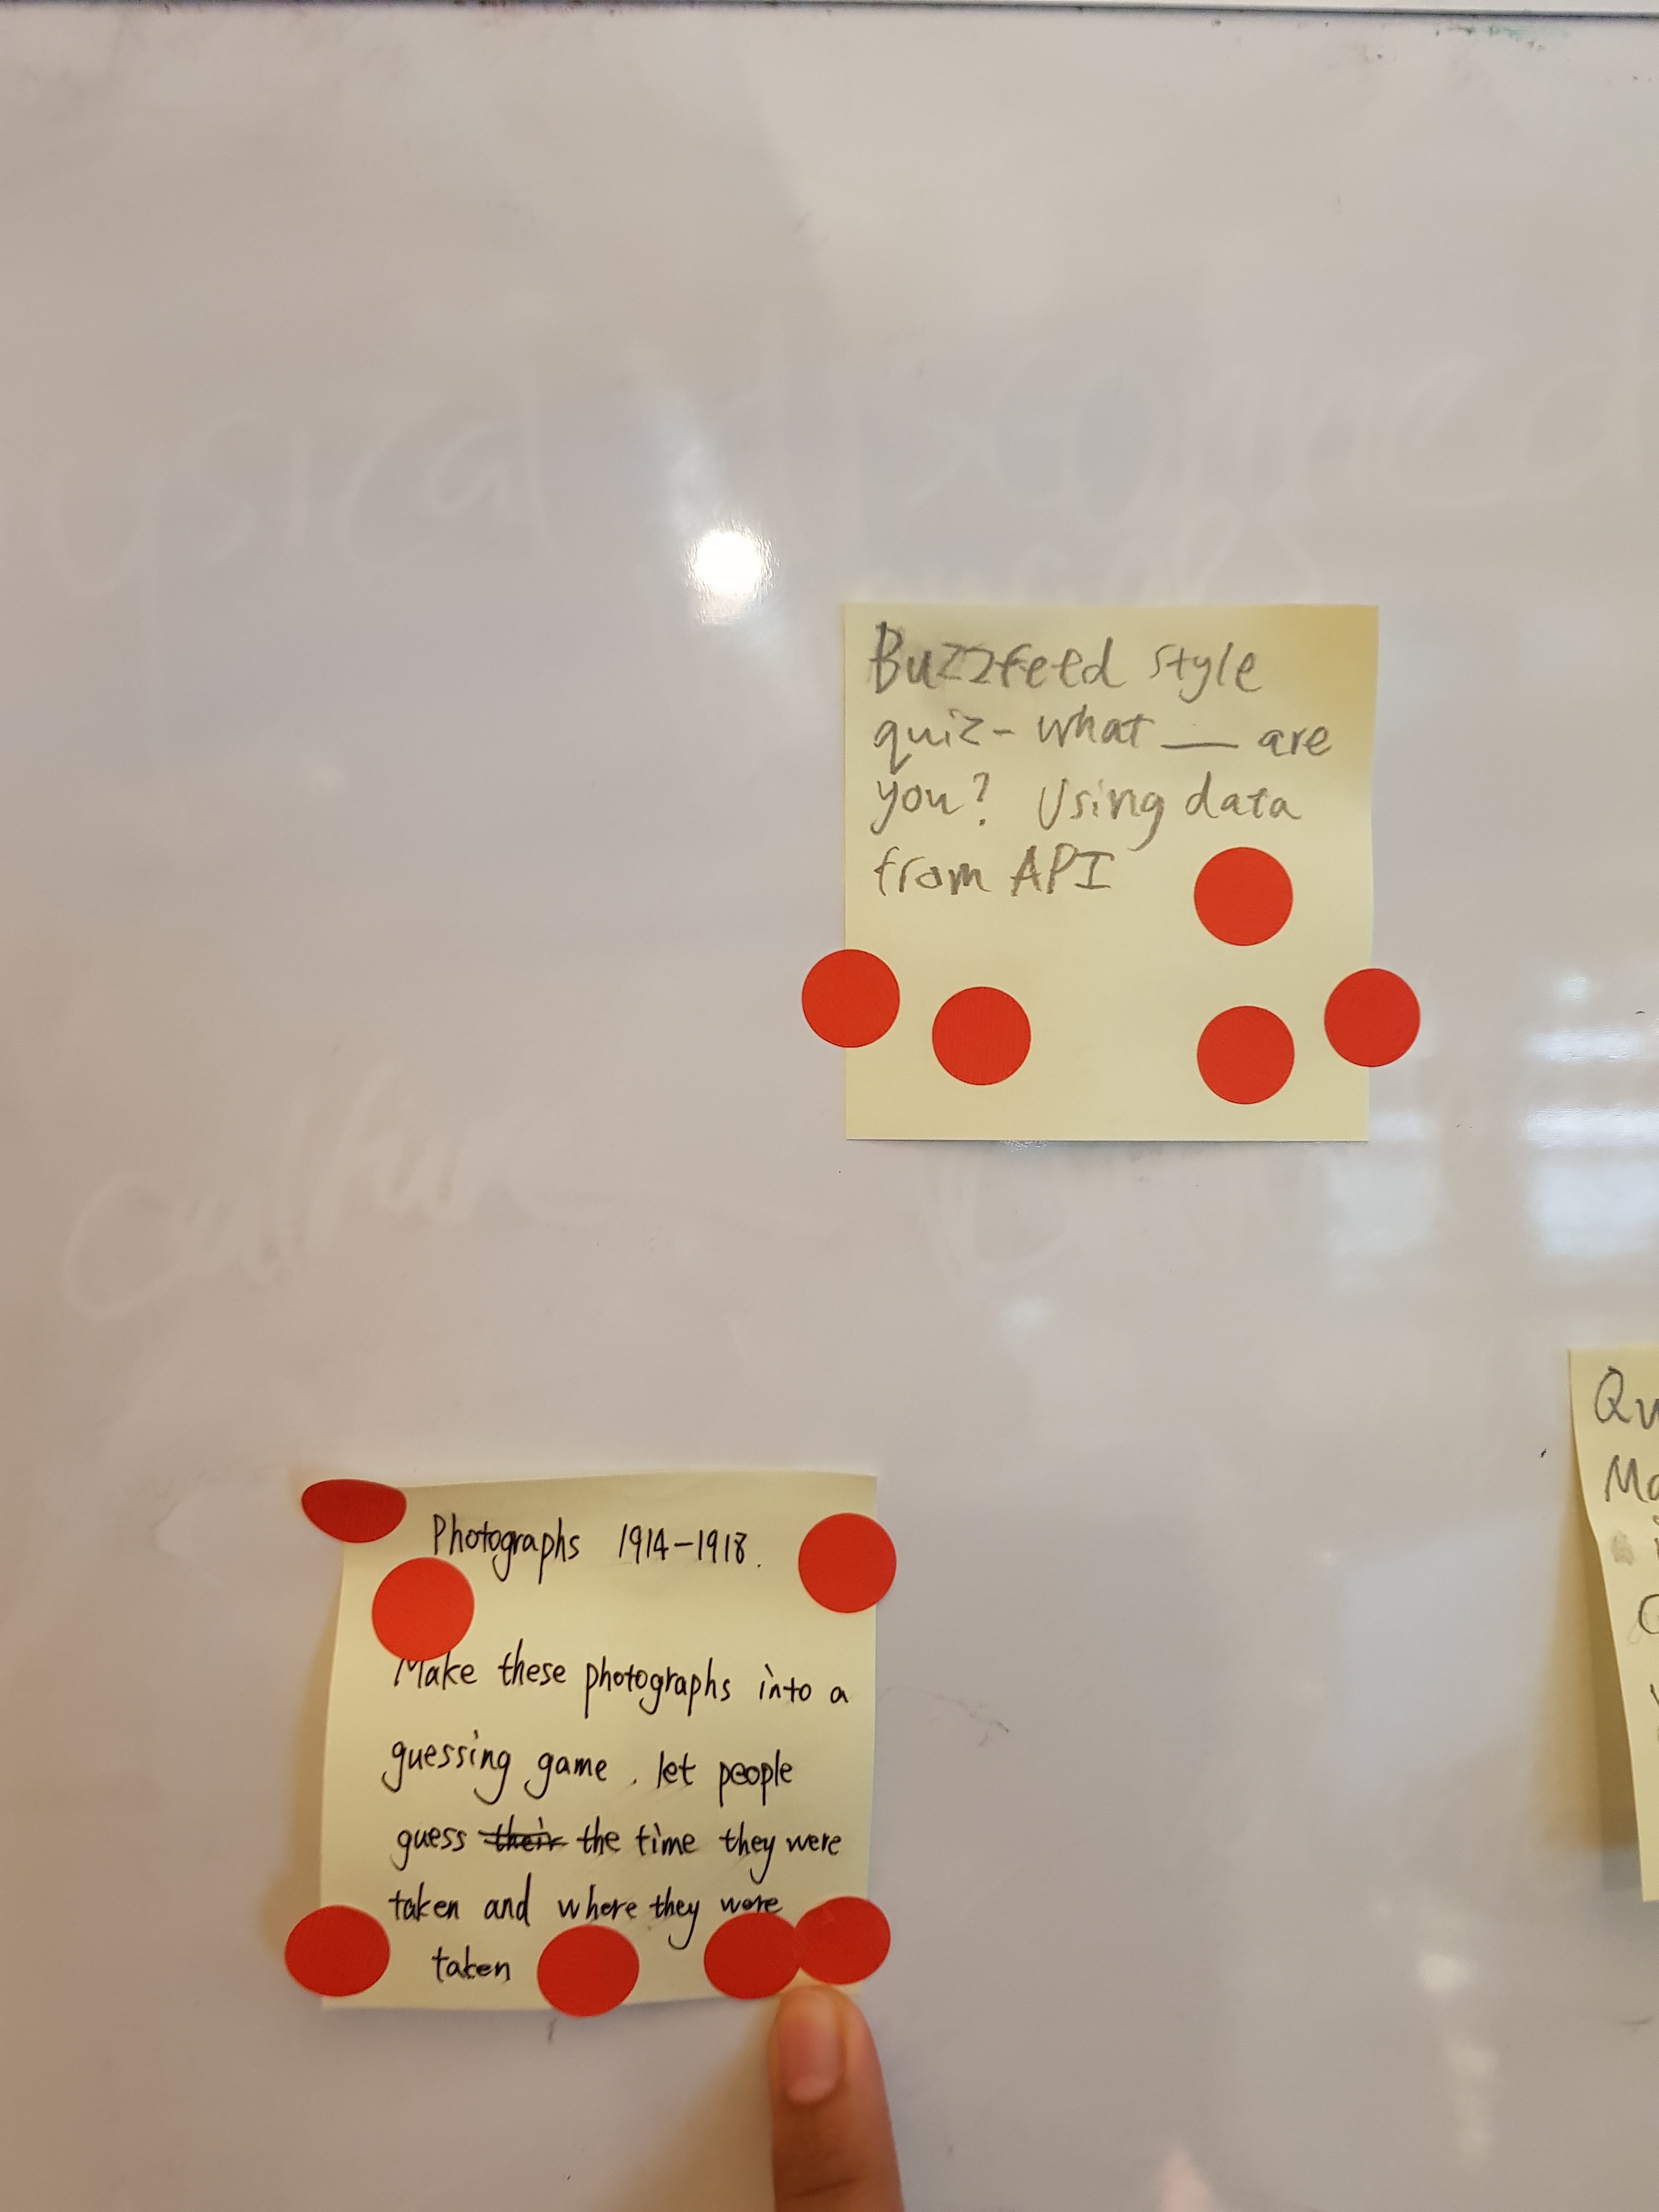 Buzzfeed style
quiz- what __ are
you? Using data
from API
Photographs 1914-1918.
Make these photographs into a
guessing game. let people
guess their the time they were
taken and where they were
taken